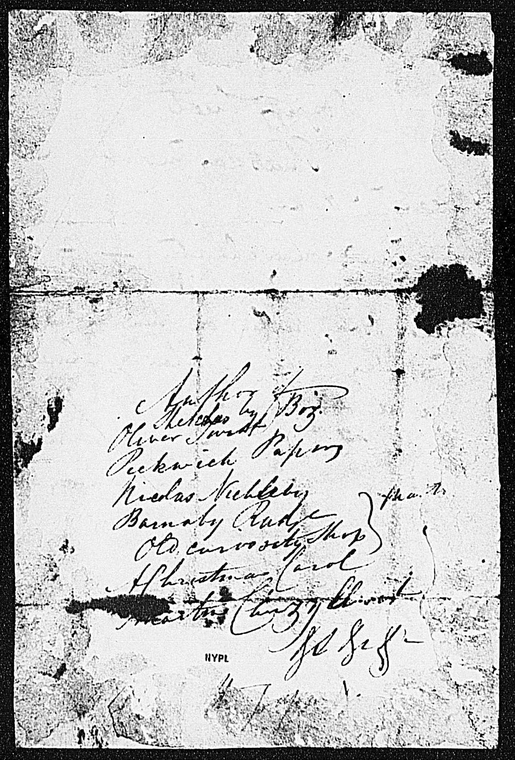 Author of
Sketches by Boz
Oliver Twist
Pickwick Papers
Nicolas Nickleby
Barnaby Rudge
Old curiosity Shop
A Christmas Carol
Martin Chuzzlewit
NYPL